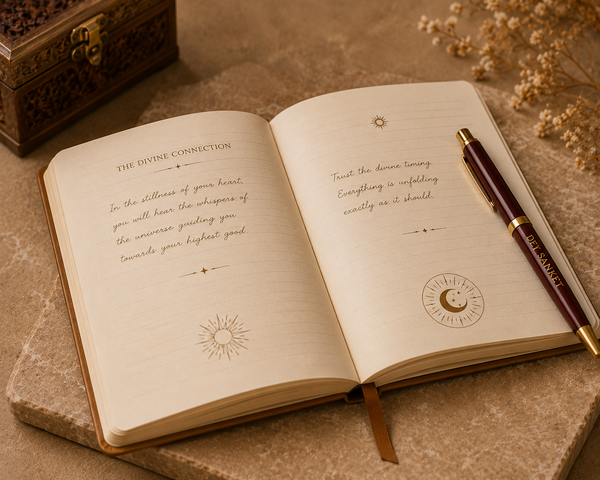 THE DIVINE CONNECTION
In the stillness of your heart,
you will hear the whispers of
the universe guiding you
towards your highest good.
Trust the divine timing.
Everything is unfolding
exactly as it should.
DEV SANKET